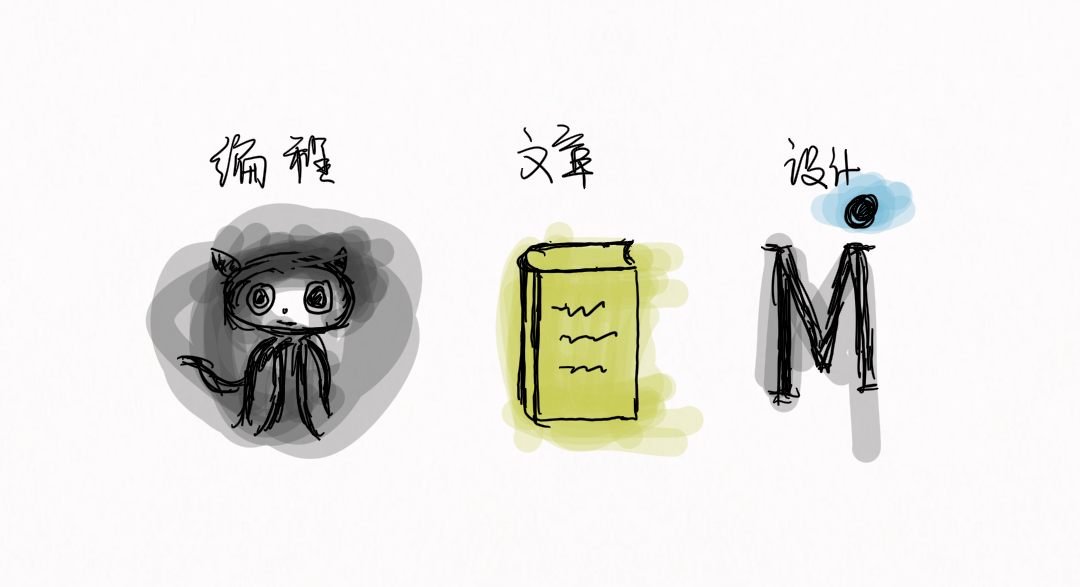 编程 文章 设计
M